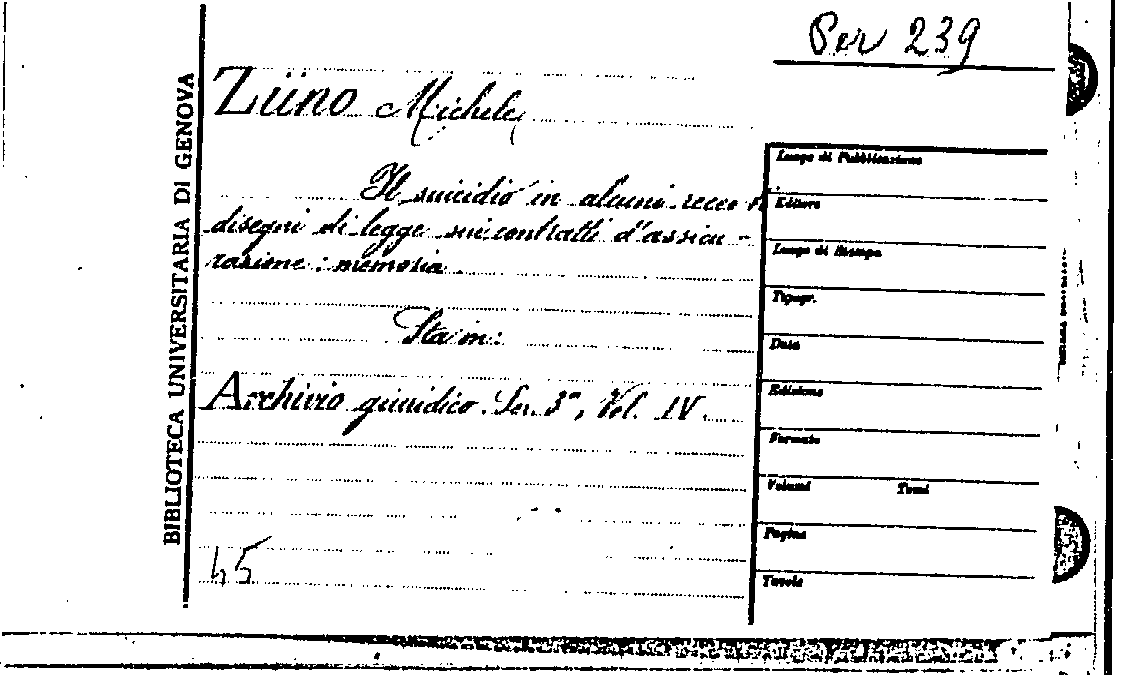 Per 239
BIBLIOTECA UNIVERSITARIA DI GENOVA
Zino Michele
Il suicidio in alcuni recenti
disegni di legge sui contratti d'assicu-
razione: memoria.
Sta in:
Archivio giuridico. Ser. 3ª, Vol. IV.
45
Luogo di Pubblicazione
Editore
Luogo di Stampa
Tipogr.
Data
Edizione
Formato
Volumi Tomi
Pagine
Tavole